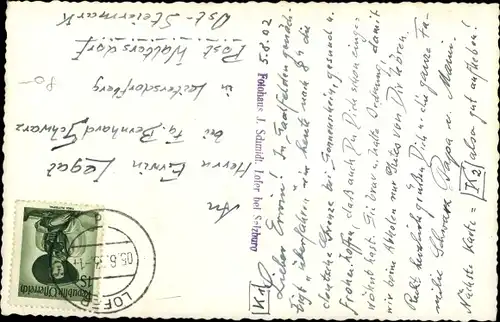 5.8.02
Lieber Erwin! In Saalfelden genäch-
tigt u. überfahren wir heute nach 8h die
deutsche Grenze bei Sonnenschein, gesund u.
froh u. hoffen, daß auch Du Dich schon einge-
wöhnt hast. Sei brav u. halte Ordnung, damit
wir beim Abholen nur Gutes von Dir hören.
Recht herzlich grüßen Dich u. die ganze Fa-
milie Schwarz Papa u. Mami.
Nächste Karte = K2 also gut aufheben!
Kd
Fotohaus J. Schmidt, Lofer bei Salzburg
An
Herrn Erwin Legat
bei Fa. Bernhard Schwarz
in Leitersdorfberg
80
Post Waltersdorf
Ost-Steiermark
Republik Österreich
LOFER